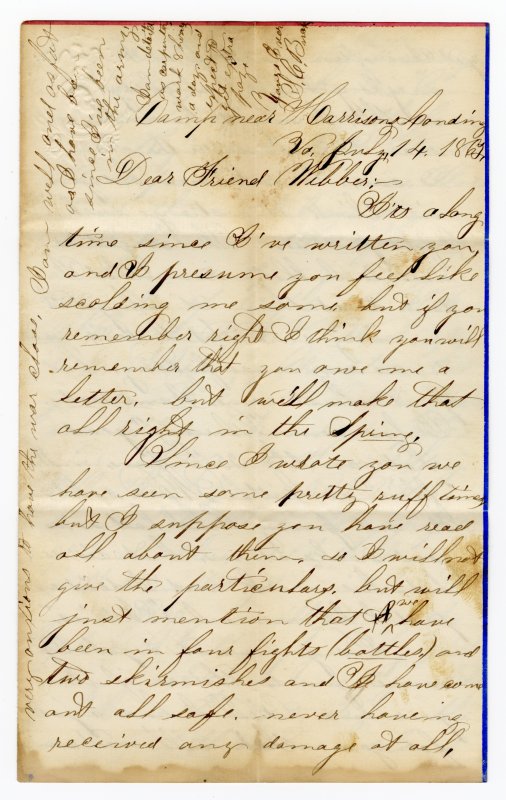 Camp near Harrisons Landing
Va, July, 14. 1862,
Dear Friend Webber;-
It's a long
time since I've written you,
and I presume you feel like
scolding me some, but if you
remember right I think you will
remember that you owe me a
letter. but we'll make that
all right in the Spring.
Since I wrote you we
have seen some pretty ruff times
but I suppose you have read
all about them, so I will not
give the particulars. but will
just mention that we have
been in four fights (battles) and
two skirmishes and I have come
out all safe. never having
received any damage at all,
very anxious to have the war close, I am well and as fat
as I have been
since I've been
in the army
I am detailed
as carpenter
work
a day and
expect to
get extra
pay.
Yours Ever